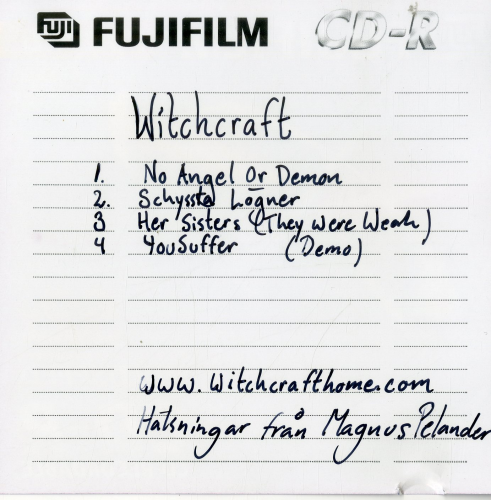 FUJI FUJIFILM CD-R
Witchcraft
1. No Angel Or Demon
2. Schyssta Lögner
3 Her Sisters (They Were Weak)
4 You Suffer (Demo)
www.witchcrafthome.com
Hälsningar från Magnus Pelander